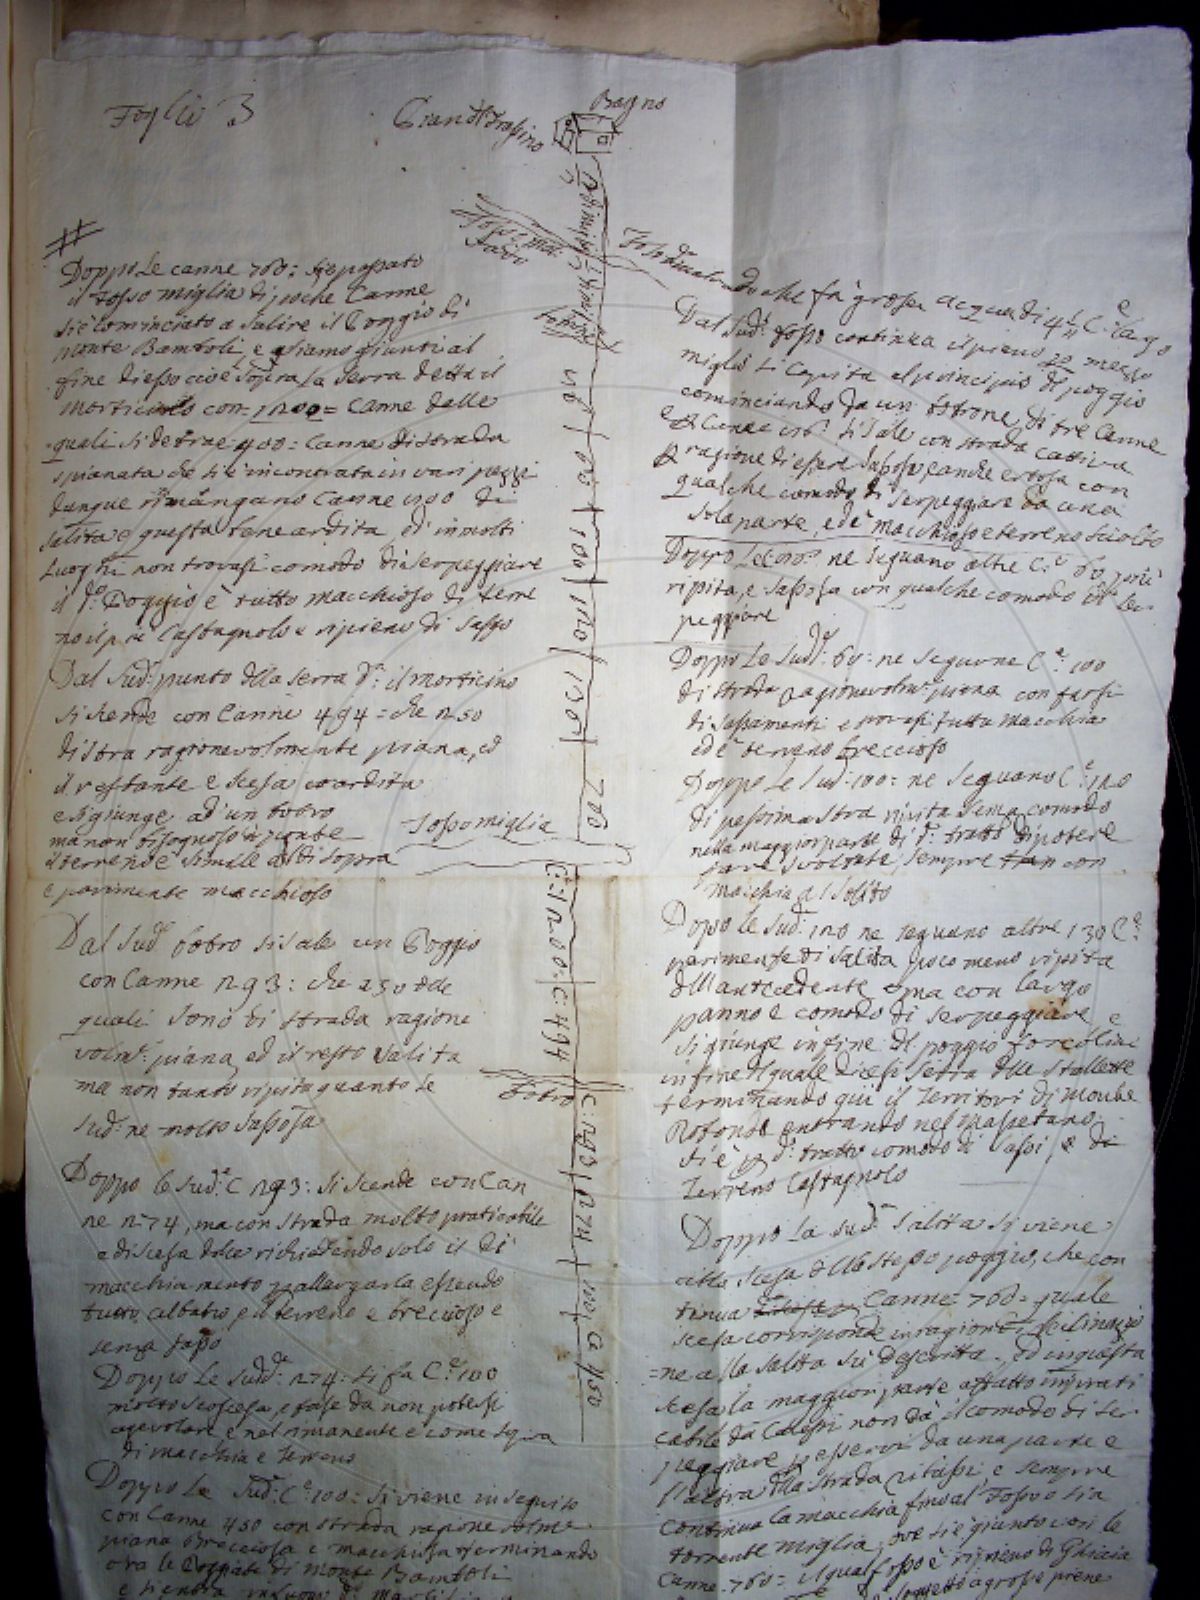 Foglio 3
Bagno
Doppo Le canne 760: si è passato
il Fosso miglia di poche Canne
si è cominciato a salire il Poggio di
Monte Bamboli, e siamo giunti al
fine di esso cioè sopra la serra detta il
morticino con 1200 = Canne dalle
quali si detrae 400 = Canne di strada
spianata che si è incontrata in vari pezzi
dunque rimangano Canne di
salita e questa bene ardita, ed in molti
Luoghi non trovasi comodo di serpeggiare
il d.o Poggio è tutto macchioso di terre
no il più Castagnolo e ripieno di sasso
Dal Sud.o punto della serra d.a il morticino
si scende con Canne 494 = che 250
di stra ragionevolmente piana, ed
il restante è scesa
e si giunge ad un botro
ma non bisognoso di ponte
il terreno è simile al di sopra
e parimente macchioso
Fosso miglia
Dal Sud.o botro si sale un Poggio
con Canne 293: che 250 delle
quali sono di strada ragione
volm.e piana, ed il resto salita
ma non tanto ripita quanto le
sud.e ne molto sassosa
Botro
Doppo le sud.e C 293: si scende con Can
ne 274, ma con strada molto praticabile
e discesa dolce richiedendo solo il di
macchiamento p allargarla essendo
tutto albatro, e il terreno è breccioso e
senza sasso
Doppo Le Sudd.e 274: si fa C.e 100
molto scoscesa, e tale da non potersi
agevolare, e nel rimanente è come sopra
di macchia e terreno
Doppo Le Sud.e C.e 100: si viene in seguito
con Canne 450 con strada
piana Brecciosa e macchiosa terminando
ora le Poggiate di Monte Bamboli
60
100
120
130
760
C: 1200
C 494
C: 293
274
100
C.a 450
che fa grossa acqua di 4 C.e largo
Dal Sud.o fosso continua il piano p mezzo
miglio si capita al principio di poggio
cominciando da un botrone di tre Canne
si sale con strada cattiva
p ragione di essere sassosa e anche ertosa con
qualche comodo di serpeggiare da una
sola parte, ed è macchioso e terreno sciolto
Doppo ne seguano altre C.e 60 più
ripita, e sassosa con qualche comodo di ser
peggiare
Doppo Le Sud.e 60: ne seguane C.e 100
di strada ragionevolm.e piana con farsi
di sassamenti e trovasi tutta macchia
ed è terreno breccioso
Doppo Le Sud.e 100: ne seguano C.e 120
di pessima stra ripita senza comodo
nella maggior parte di d.o tratto di potere
fare svoltate, sempre con
macchia al solito
Dopo le Sud.e 120 ne seguano altre 130 C.e
parimente di salita poco meno ripita
dell antecedente ma con largo
panno e comodo di serpeggiare e
si giunge in fine del poggio forcolina
in fine del quale dicesi serra delle stallette
terminando qui il Territori di Monte
Rotondo entrando nel Massetano
si è p d.o tratto comodo di sassi, e di
Terreno Castagnolo
Doppo La sud.a salita si viene
alla scesa dello stesso poggio, che con
tinua Canne 760 = quale
scesa corrisponde in ragione di Inclinazio
=ne alla salita su descritta, ed in questa
scesa la maggior parte affatto imprati
cabile da Calessi non dà il comodo di ser
peggiare p esservi da una parte e
l'altra della strada ritassi, e sempre
continua la macchia fino al Fosso sia
torrente miglia, ove si è giunto con le
Canne 760 = il qual fosso è ripieno di Ghiaia